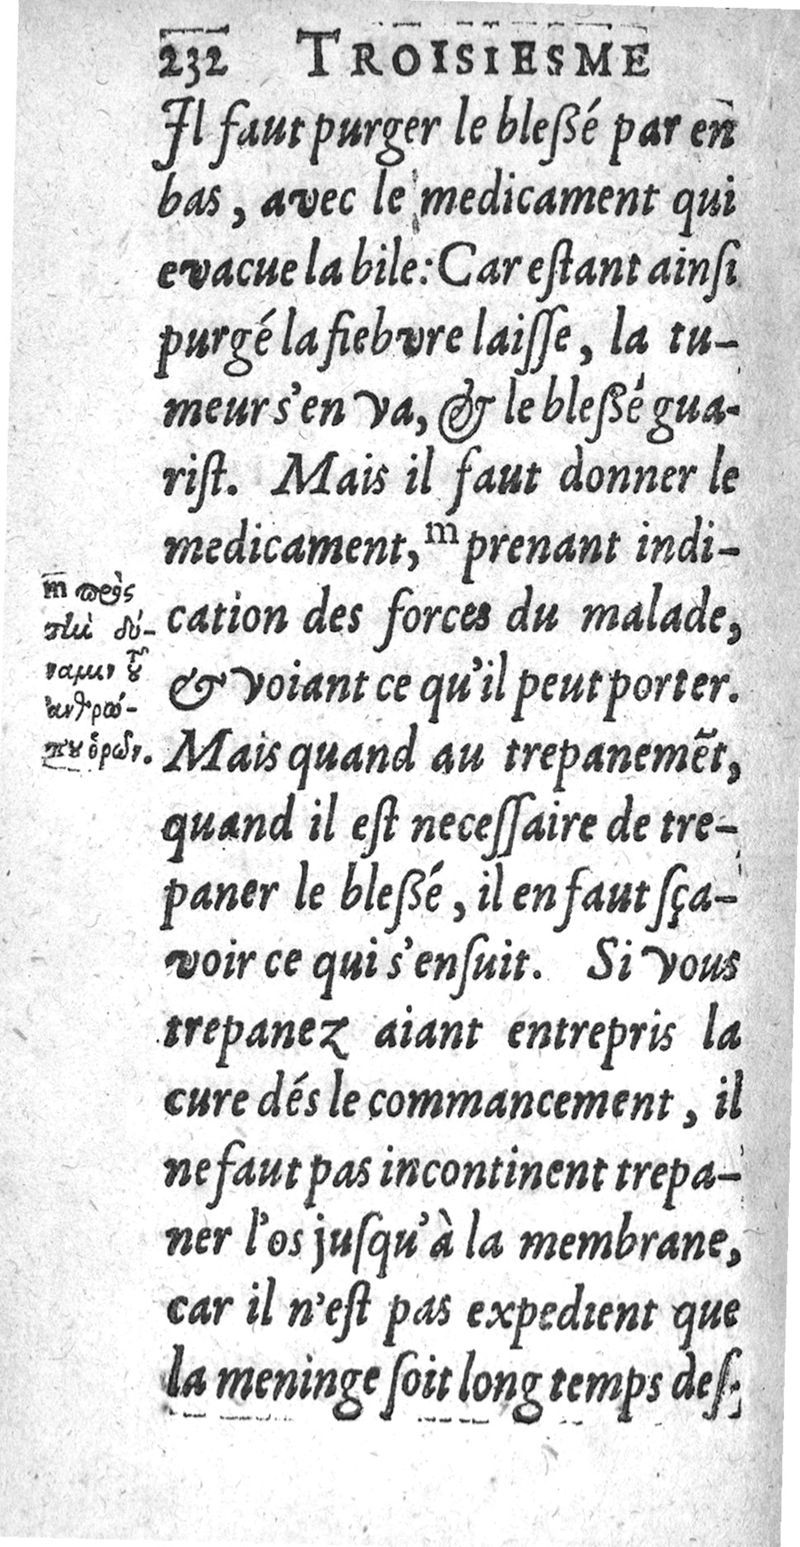 232 TROISIESME
Il faut purger le bleßé par en
bas, avec le medicament qui
evacue la bile: Car eſtant ainſi
purgé la fiebvre laiſſe, la tu-
meur s'en va, & le bleßé gua-
riſt. Mais il faut donner le
medicament, m prenant indi-
cation des forces du malade,
& voiant ce qu'il peut porter.
Mais quand au trepanemẽt,
quand il eſt neceſſaire de tre-
paner le bleßé, il en faut ſça-
voir ce qui s'enſuit. Si vous
trepanez aiant entrepris la
cure dés le commancement, il
ne faut pas incontinent trepa-
ner l'os juſqu'à la membrane,
car il n'eſt pas expedient que
la meninge ſoit long temps deſ-
m πρὸς
τὴν δύ-
ναμιν τοῦ
ἀνθρώ-
που ὁρῶν.